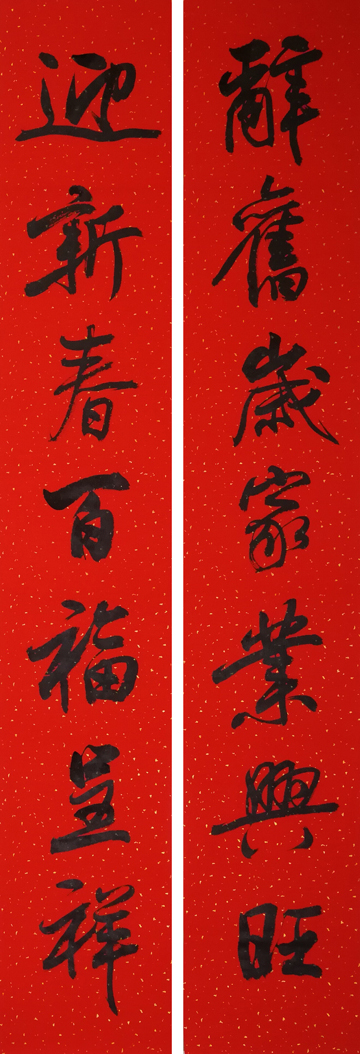 辭舊歲家業興旺
迎新春百福呈祥